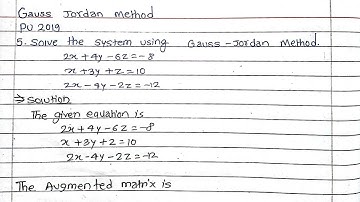 Gauss Jordan method
PU 2019
5. Solve the system using Gauss-Jordan Method.
2x+4y-6z=-8
x+3y+z=10
2x-4y-2z=-12
⇒ Soution
The given equation is
2x+4y-6z=-8
x+3y+z=10
2x-4y-2z=-12
The Augmented matrix is